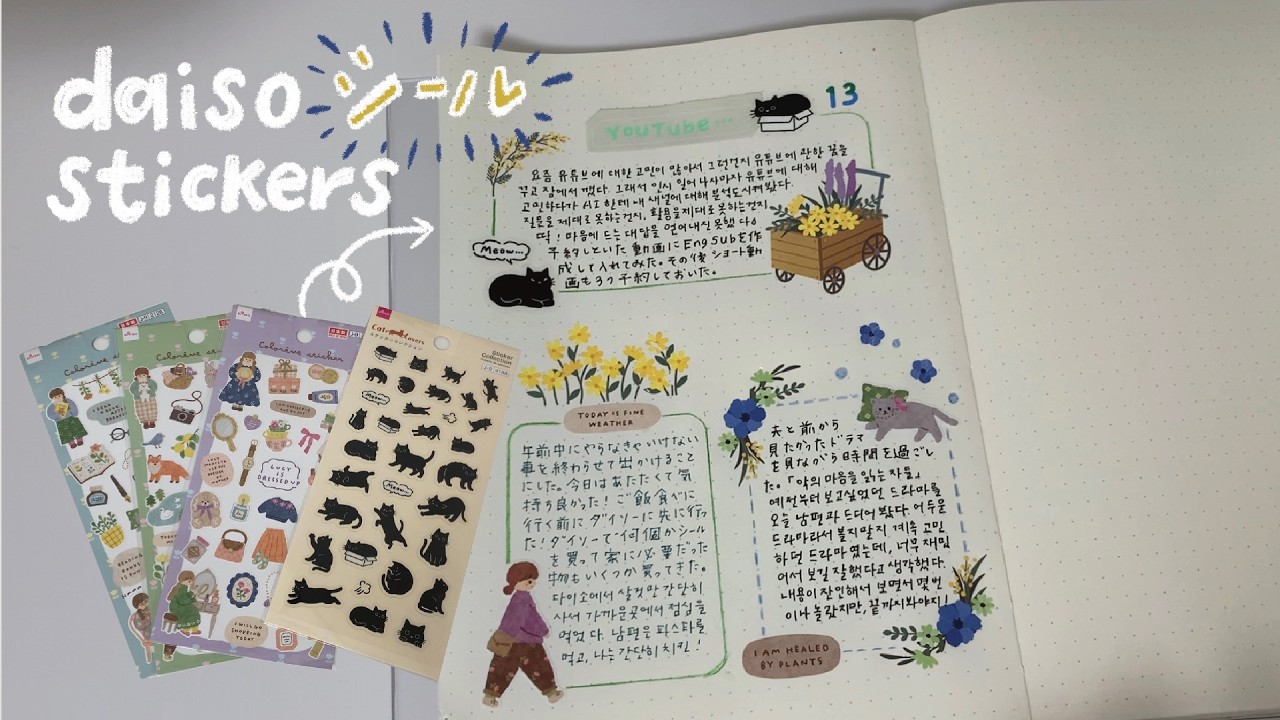 daisoシール
stickers
YouTube...
13
요즘 유튜브에 대한 고민이 많아서 그런건지 유튜브에 관한 꿈을
꾸고 잠에서 깼다. 그래서 인지 일어나자마자 유튜브에 대해
고민하다가 AI 한테 내 채널에 대해 분석도시켜봤다.
질문을 제대로 못하는건지, 활용을제대로 못하는건지
딱! 마음에 드는 대답을 얻어내진 못했다
予約しといた動画にEng Subを作
成して入れてみた。その後ショート動
画も3つ予約しておいた。
Meow...
TODAY IS FINE
WEATHER
午前中にやらなきゃいけない
事を終わらせて出かけること
にした。今日はあたたくて気
持ち良かった！ご飯食べに
行く前にダイソーに先に行っ
た！ダイソーで何個かシール
を買って家に必要だった
物もいくつか買ってきた。
다이소에서 살것만 간단히
사서 가까운곳에서 점심을
먹었다. 남편은 파스타를
먹고, 나는 간단히 치킨!
夫と前から
見たかったドラマ
を見ながら時間を過ごし
た。「악의 마음을 읽는 자들」
예전부터 보고싶었던 드라마를
오늘 남편과 드디어 봤다. 어두운
드라마라서 볼지말지 계속 고민
하던 드라마였는데, 너무 재밌
어서 보길 잘했다고 생각했다.
내용이 잔인해서 보면서 몇번
이나 놀랐지만, 끝까지봐야지!
I AM HEALED
BY PLANTS
Coloréve sticker
LUCY
IS
DRESSED UP
I WILL GO
SHOPPING
TODAY
Cat Lovers
Sticker
Collection
Meow...
Meow...